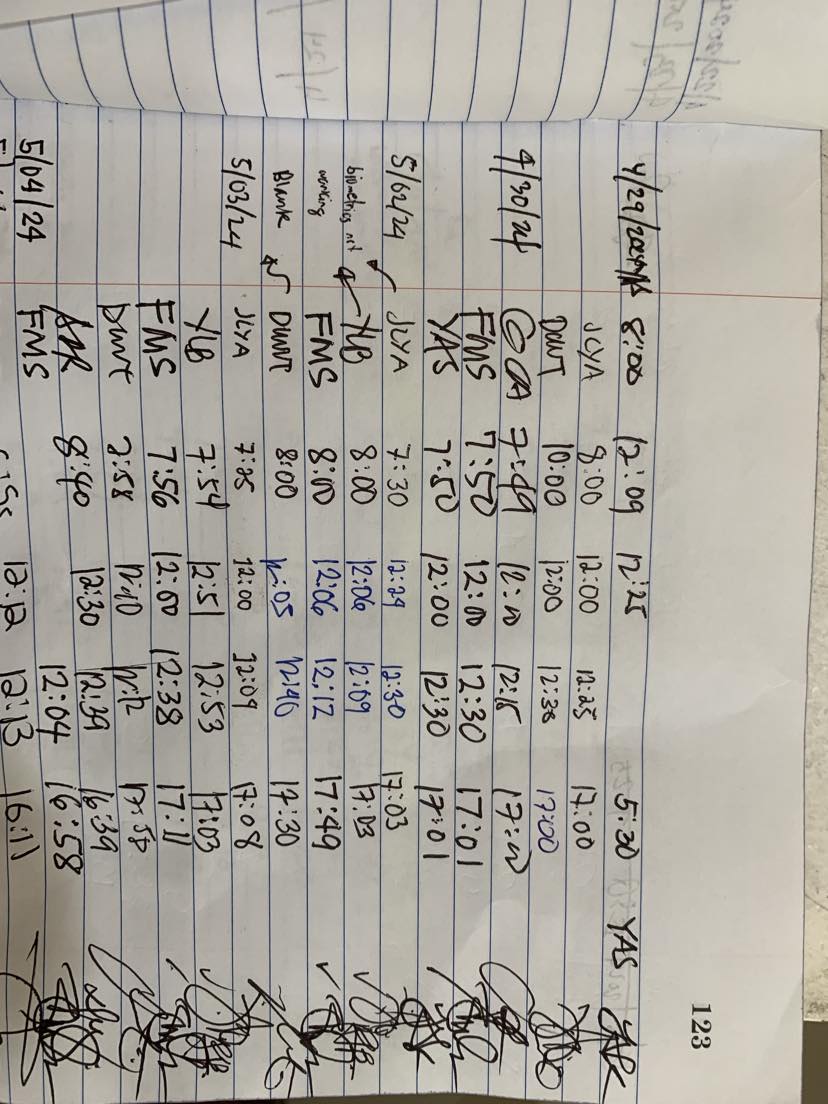 123
4/29/2024 8:00 12:09 12:25 5:30 YAS
JLYA 8:00 12:00 12:25 17:00
DWNT 10:00 12:00 12:38 17:00
4/30/24 GOA 7:49 12:10 12:15 17:10
FMS 7:50 12:10 12:30 17:01
YAS 7:50 12:00 12:30 17:01
5/02/24 JLYA 7:30 12:29 12:30 17:03
biometrics not YLB 8:00 12:06 12:09 17:03
working FMS 8:00 12:06 12:12 17:49
Blank DWNT 8:00 12:05 12:40 17:30
5/03/24 JLYA 7:25 12:00 12:09 17:08
YLB 7:54 12:51 12:53 17:03
FMS 7:56 12:00 12:38 17:11
DWNT 7:58 12:10 12:12 17:58
8:40 12:30 12:39 16:39
5/04/24 FMS 12:04 16:58
12:12 12:13 16:11